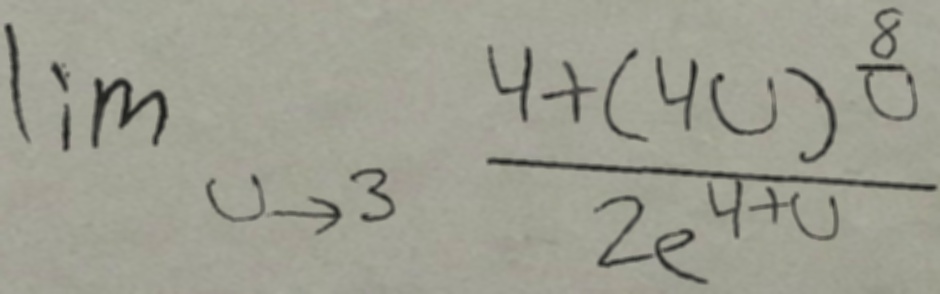 lim_{u→3} \frac{4+(4u)^{\frac{8}{u}}}{2e^{4+u}}